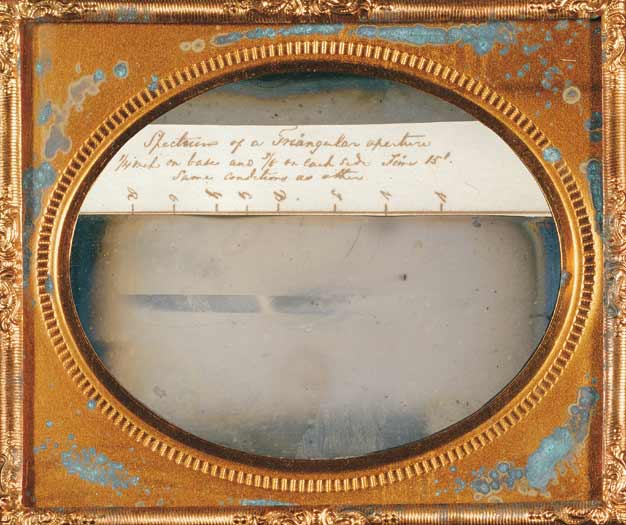 Spectrum of a Triangular aperture
1/4 inch on base and 7/8 on each side Time 15s.
Same conditions as other